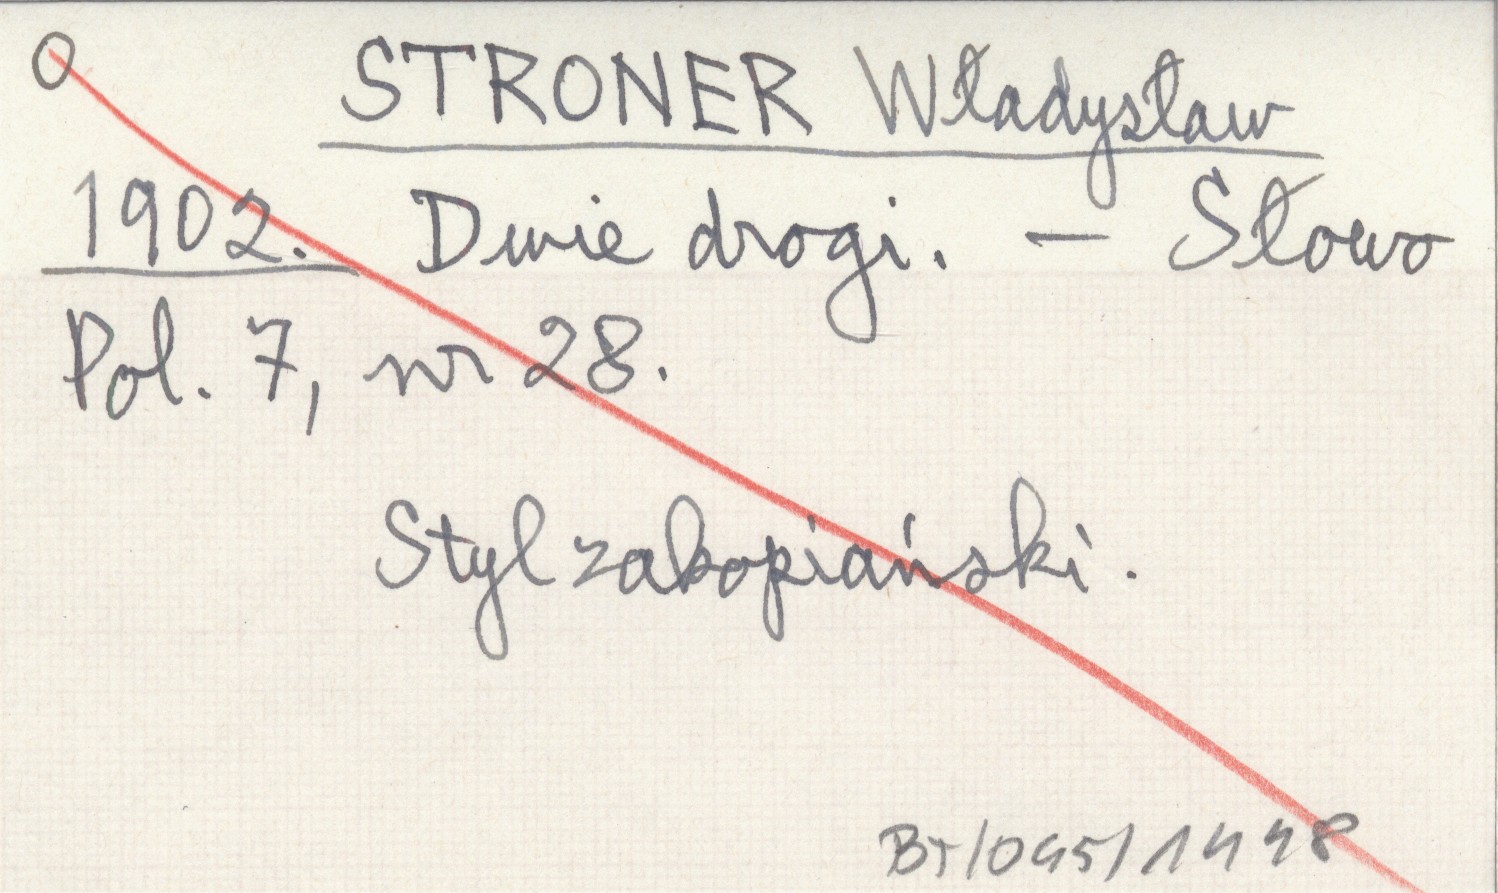 O STRONER Władysław
1902. Dwie drogi. – Słowo
Pol. 7, nr 28.
Styl zakopiański.